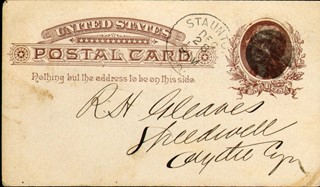 UNITED STATES
POSTAL CARD
Nothing but the address to be on this side.
STAUN
R. H. Gleaves
Speedwell
Wythe Co